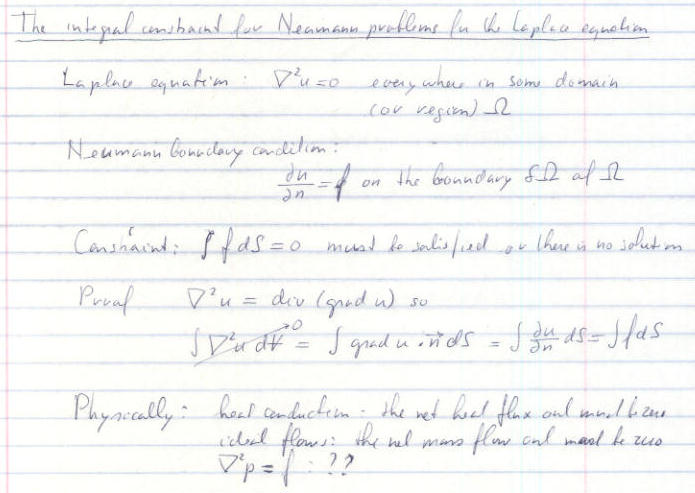 The integral constraint for Neumann problems for the Laplace equation
Laplace equation : ∇²u = 0 everywhere in some domain
(or region) Ω
Neumann boundary condition :
∂u/∂n = f on the boundary δΩ of Ω
Constraint : ∫ f dS = 0 must be satisfied or there is no solution
Proof ∇²u = div (grad u) so
∫ ∇²u dV → 0 = ∫ grad u · n⃗ dS = ∫ ∂u/∂n dS = ∫ f dS
Physically : heat conduction - the net heat flux out must be zero
ideal flows : the net mass flow out must be zero
∇²p = f : ??